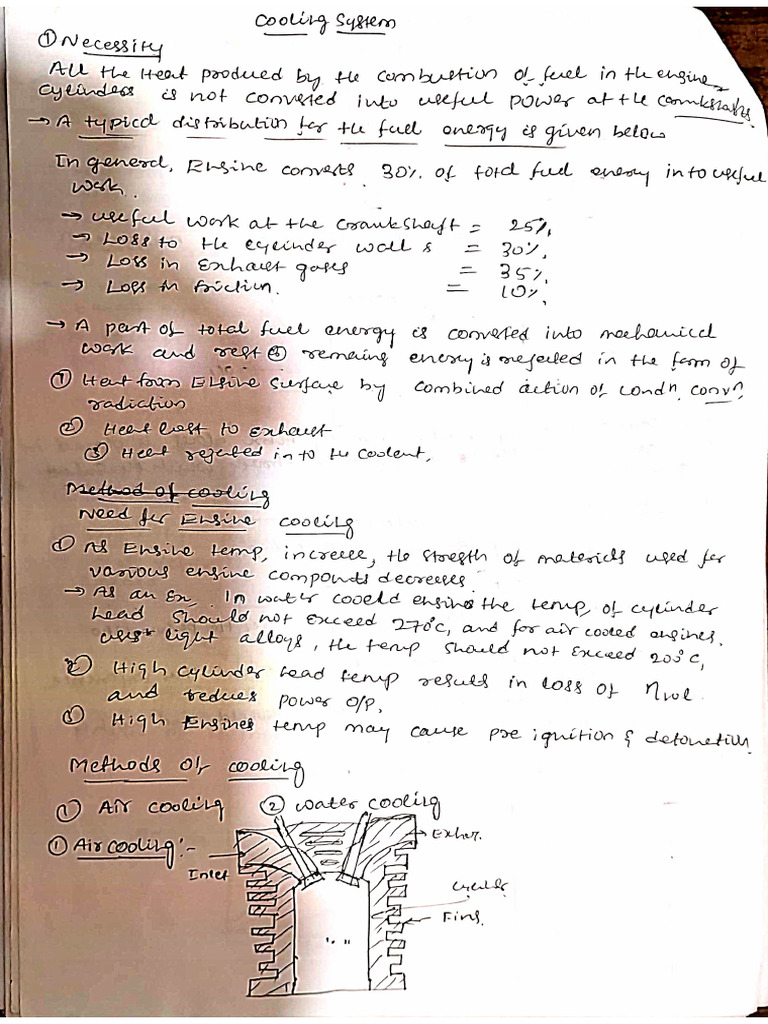 Cooling System
① Necessity
All the Heat produced by the combustion of fuel in the engine
cylinders is not converted into useful power at the crankshafts.
→ A typical distribution for the fuel energy is given below
In general, Engine converts 30% of total fuel energy into useful
work.
→ useful work at the crankshaft = 25%,
→ Loss to the cylinder walls = 30%,
→ Loss in exhaust gases = 35%,
→ Loss in friction. = 10%,
→ A part of total fuel energy is converted into mechanical
work and rest or remaining energy is rejected in the form of
① Heat from Engine surface by combined action of condⁿ. convⁿ.
radiation
② Heat lost to exhaust
③ Heat rejected in to the coolent,
Method of cooling
Need for Engine cooling
① As Engine temp, increese, the stregth of materials used for
various engine componds decreases
→ As an Ex. In water cooled engines the temp, of cylinder
head should not exceed 270°c, and for air cooled engines.
uses light alloys, the temp should not exceed 200°c,
② High cylinder head temp results in loss of ηvol
and reduces power o/p,
③ High Engines temp may cause pre ignition & detonetion
Methods of cooling
① AIR cooling ② water cooling
① Air cooling :-
Inlet
Exhar.
Cylinder
Fins.